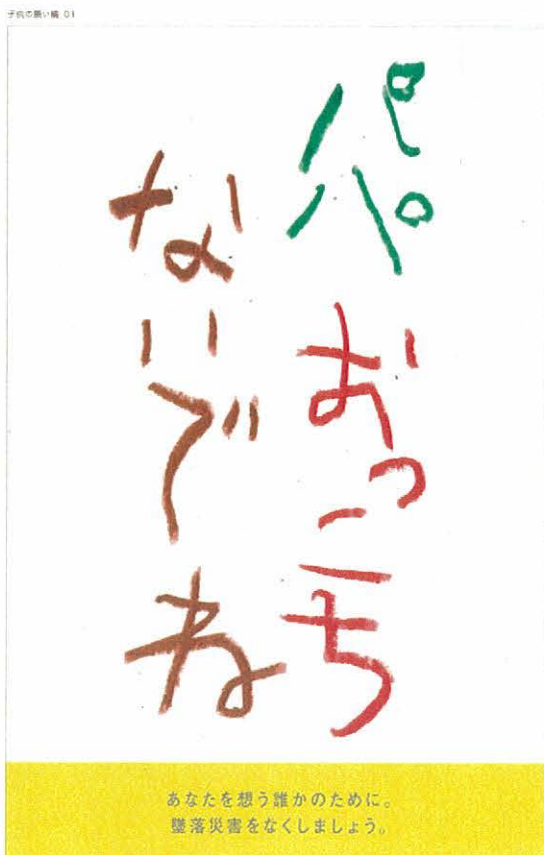 子供の願い編 01
パパ おっこち
ないでね
あなたを想う誰かのために。
墜落災害をなくしましょう。